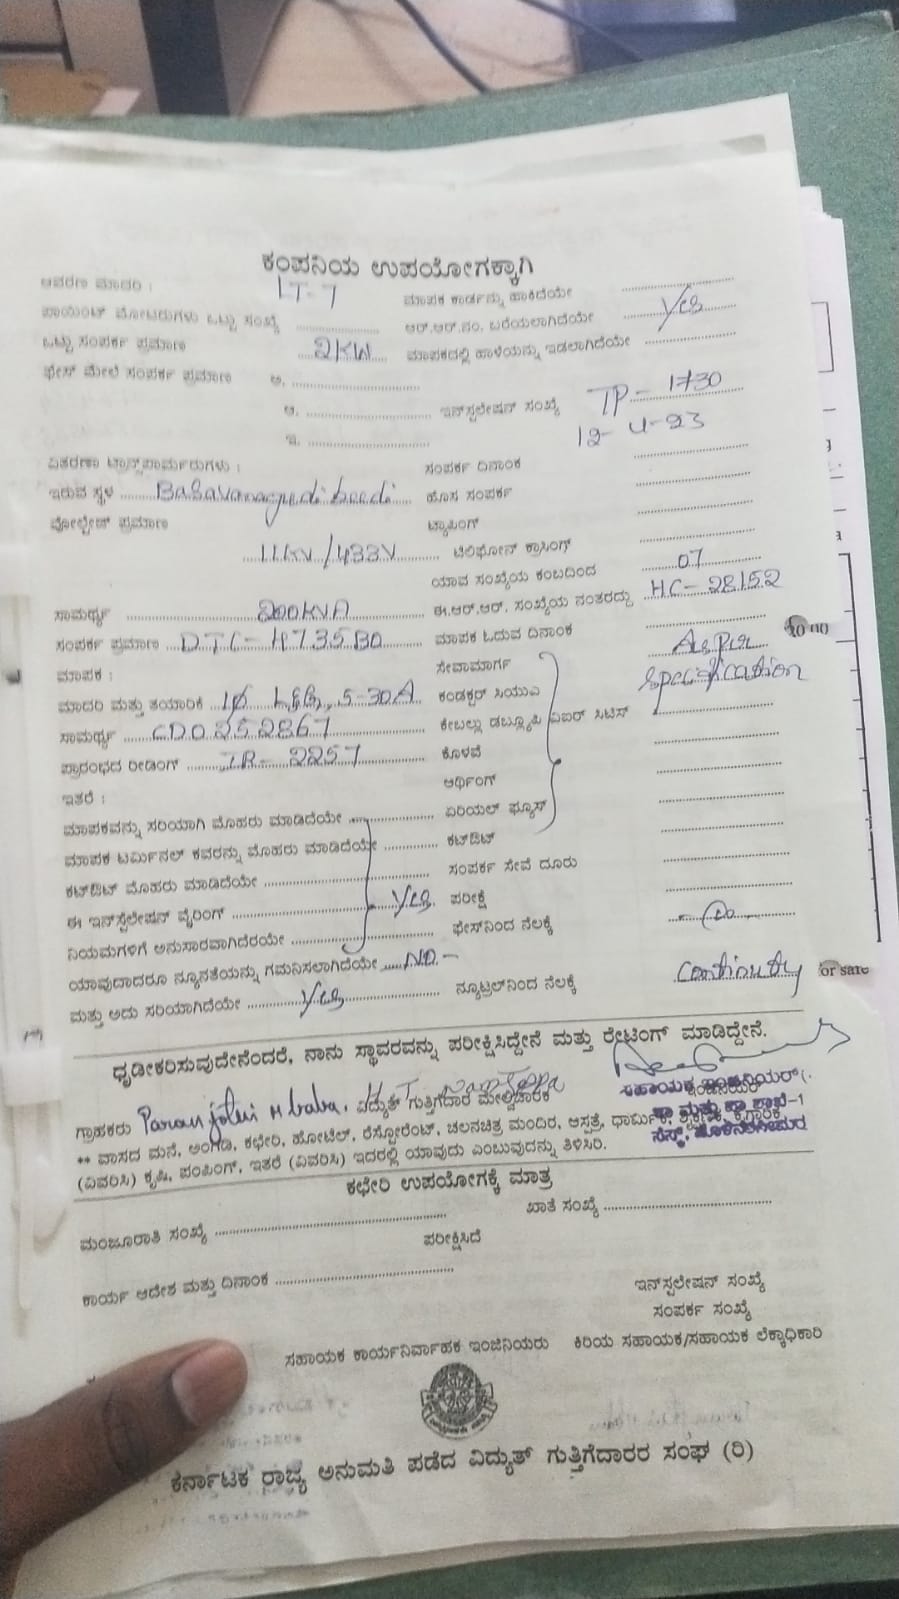 ಕಂಪನಿಯ ಉಪಯೋಗಕ್ಕಾಗಿ
ಆವರಣ ಮಾದರಿ : LT-7 ಮಾಪಕ ಕಾರ್ಡನ್ನು ಹಾಕಿದೆಯೇ
ಪಾಯಿಂಟ್ ಮೋಟರುಗಳು ಒಟ್ಟು ಸಂಖ್ಯೆ ಆರ್.ಆರ್.ನಂ. ಬರೆಯಲಾಗಿದೆಯೇ Yes
ಒಟ್ಟು ಸಂಪರ್ಕ ಪ್ರಮಾಣ 2KW ಮಾಪಕದಲ್ಲಿ ಹಾಳೆಯನ್ನು ಇಡಲಾಗಿದೆಯೇ
ಫೇಸ್ ಮೇಲೆ ಸಂಪರ್ಕ ಪ್ರಮಾಣ ಅ.
ಆ. ಇನ್‌ಸ್ಟಲೇಷನ್ ಸಂಖ್ಯೆ TP- 1730
ಇ. 12-4-23
ವಿತರಣಾ ಟ್ರಾನ್ಸ್‌ಫಾರ್ಮರುಗಳು : ಸಂಪರ್ಕ ದಿನಾಂಕ
ಇರುವ ಸ್ಥಳ Basavanagudi beedi ಹೊಸ ಸಂಪರ್ಕ
ವೋಲ್ಟೇಜ್ ಪ್ರಮಾಣ ಟ್ಯಾಪಿಂಗ್
11KV/433V ಟೆಲಿಫೋನ್ ಕ್ರಾಸಿಂಗ್
ಯಾವ ಸಂಖ್ಯೆಯ ಕಂಬದಿಂದ 07
ಸಾಮರ್ಥ್ಯ 200KVA ಈ.ಆರ್.ಆರ್. ಸಂಖ್ಯೆಯ ನಂತರದ್ದು HC-28152
ಸಂಪರ್ಕ ಪ್ರಮಾಣ DTC-473580 ಮಾಪಕ ಓದುವ ದಿನಾಂಕ
ಮಾಪಕ : ಸೇವಾಮಾರ್ಗ As per
ಮಾದರಿ ಮತ್ತು ತಯಾರಿಕೆ 1Φ L&G, 5-30A ಕಂಡಕ್ಟರ್ ಸಿಯುಎ specification
ಸಾಮರ್ಥ್ಯ CD0252867 ಕೇಬಲ್ಲು ಡಬ್ಲ್ಯೂಪಿ ಏಐರ್ ಸಿಟಿಸ್
ಪ್ರಾರಂಭದ ರೀಡಿಂಗ್ IR-2257 ಕೊಳವೆ
ಇತರೆ : ಆರ್ಥಿಂಗ್
ಮಾಪಕವನ್ನು ಸರಿಯಾಗಿ ಮೊಹರು ಮಾಡಿದೆಯೇ ಏರಿಯಲ್ ಫ್ಯೂಸ್
ಮಾಪಕ ಟರ್ಮಿನಲ್ ಕವರನ್ನು ಮೊಹರು ಮಾಡಿದೆಯೇ ಕಟ್‌ಔಟ್
ಕಟ್‌ಔಟ್ ಮೊಹರು ಮಾಡಿದೆಯೇ ಸಂಪರ್ಕ ಸೇವೆ ದೂರು
ಈ ಇನ್‌ಸ್ಟಲೇಷನ್ ವೈರಿಂಗ್ Yes ಪರೀಕ್ಷೆ
ನಿಯಮಗಳಿಗೆ ಅನುಸಾರವಾಗಿದೆಯೇ ಫೇಸ್‌ನಿಂದ ನೆಲಕ್ಕೆ
ಯಾವುದಾದರೂ ನ್ಯೂನತೆಯನ್ನು ಗಮನಿಸಲಾಗಿದೆಯೇ NO-
ಮತ್ತು ಅದು ಸರಿಯಾಗಿದೆಯೇ Yes ನ್ಯೂಟ್ರಲ್‌ನಿಂದ ನೆಲಕ್ಕೆ continuty
ಧೃಡೀಕರಿಸುವುದೇನೆಂದರೆ, ನಾನು ಸ್ಥಾವರವನ್ನು ಪರೀಕ್ಷಿಸಿದ್ದೇನೆ ಮತ್ತು ರೇಟಿಂಗ್ ಮಾಡಿದ್ದೇನೆ.
ಸಹಾಯಕ ಇಂಜಿನಿಯರ್
ಗ್ರಾಹಕರು Paranjothi M baba. ವಿದ್ಯುತ್ ಗುತ್ತಿಗೆದಾರ ಮೇಲ್ವಿಚಾರಕ
** ವಾಸದ ಮನೆ, ಅಂಗಡಿ, ಕಛೇರಿ, ಹೋಟೆಲ್, ರೆಸ್ಟೋರೆಂಟ್, ಚಲನಚಿತ್ರ ಮಂದಿರ, ಆಸ್ಪತ್ರೆ, ಧಾರ್ಮಿಕ, ಶೈಕ್ಷಣಿಕ, ಕೈಗಾರಿಕೆ
(ವಿವರಿಸಿ) ಕೃಷಿ, ಪಂಪಿಂಗ್, ಇತರೆ (ವಿವರಿಸಿ) ಇದರಲ್ಲಿ ಯಾವುದು ಎಂಬುವುದನ್ನು ತಿಳಿಸಿರಿ.
ಕಛೇರಿ ಉಪಯೋಗಕ್ಕೆ ಮಾತ್ರ
ಮಂಜೂರಾತಿ ಸಂಖ್ಯೆ ಖಾತೆ ಸಂಖ್ಯೆ
ಪರೀಕ್ಷಿಸಿದೆ
ಕಾರ್ಯ ಆದೇಶ ಮತ್ತು ದಿನಾಂಕ
ಇನ್‌ಸ್ಪಲೇಷನ್ ಸಂಖ್ಯೆ
ಸಂಪರ್ಕ ಸಂಖ್ಯೆ
ಸಹಾಯಕ ಕಾರ್ಯನಿರ್ವಾಹಕ ಇಂಜಿನಿಯರು ಕಿರಿಯ ಸಹಾಯಕ/ಸಹಾಯಕ ಲೆಕ್ಕಾಧಿಕಾರಿ
ಕರ್ನಾಟಕ ರಾಜ್ಯ ಅನುಮತಿ ಪಡೆದ ವಿದ್ಯುತ್ ಗುತ್ತಿಗೆದಾರರ ಸಂಘ (ರಿ)